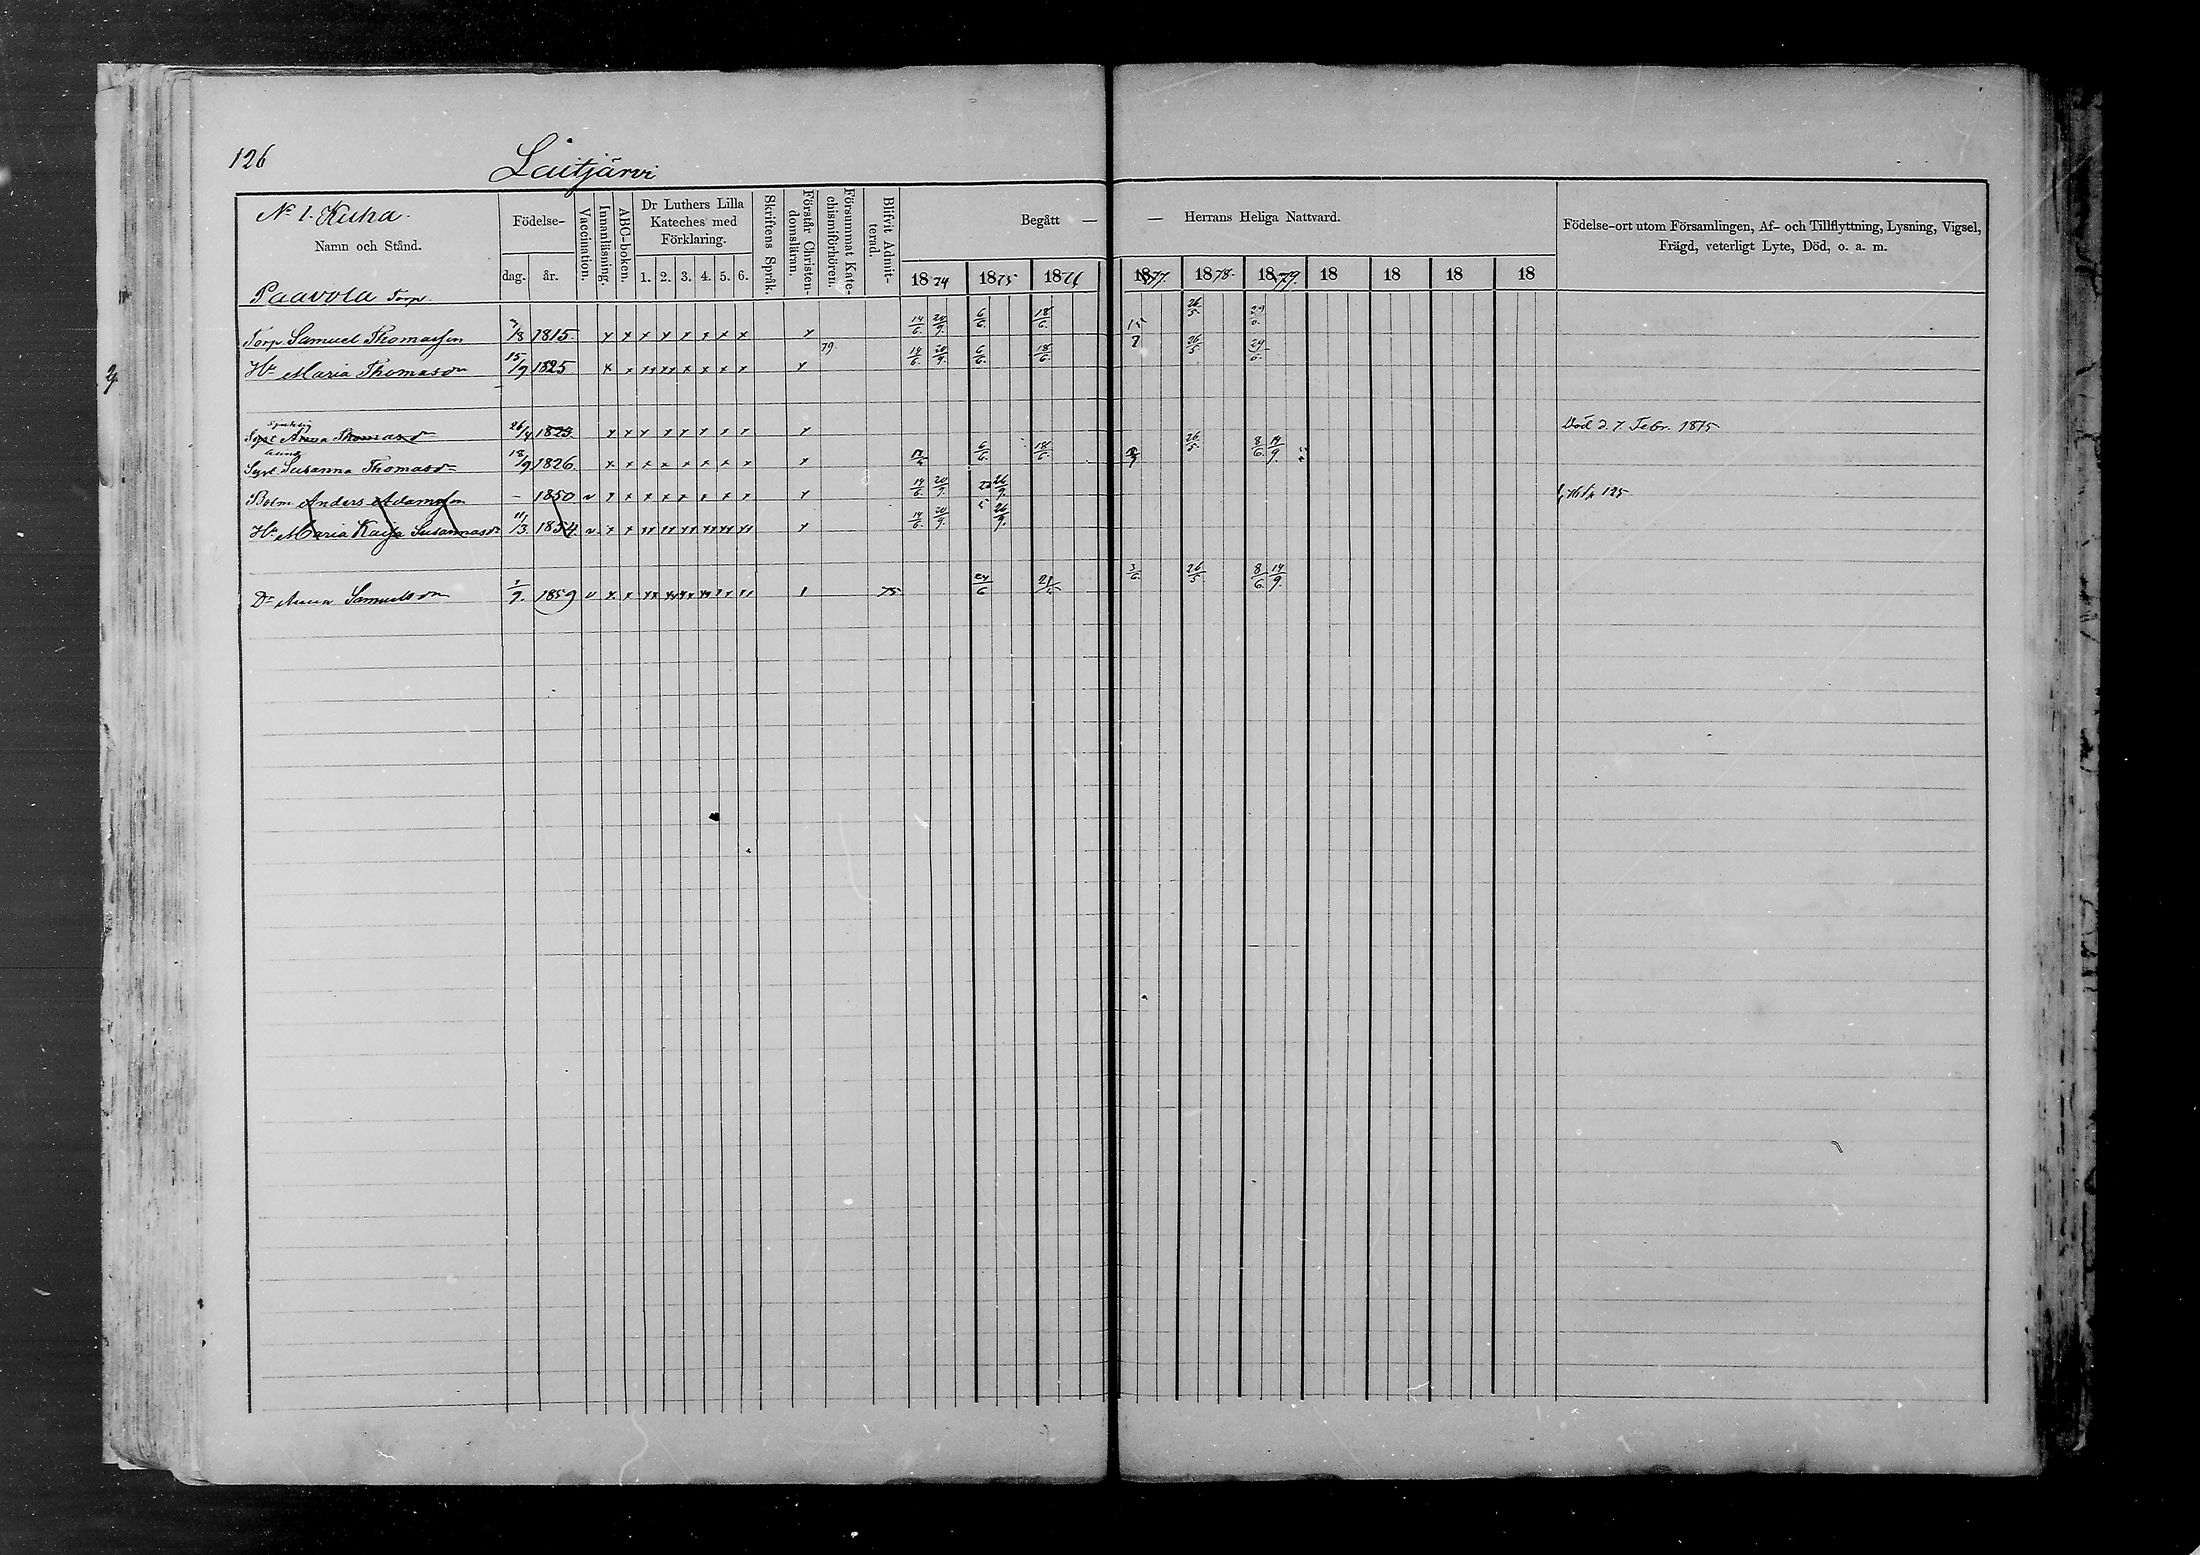 126
Laitjärvi
№ 1. Kuha.
Namn och Stånd.
Födelse-
dag. år.
Vaccination.
Innanläsning.
ABC-boken.
Dr Luthers Lilla
Kateches med
Förklaring.
1. 2. 3. 4. 5. 6.
Skriftens Språk.
Förstår Christen-
domsläran.
Försummat Kate-
chismiförhören.
Blifvit Admit-
terad.
Begått — — Herrans Heliga Nattvard.
1874 1875 1876 1877. 1878. 1879. 18 18 18 18
Födelse-ort utom Församlingen, Af- och Tillflyttning, Lysning, Vigsel,
Frägd, veterligt Lyte, Död, o. a. m.
Paavola Torp
Torp. Samuel Thomasson /8 1815. x x x x x x x x x x 14/6. 20/9. 6/6. 18/6. 15/7 26/5. 29/6.
Hu Maria Thomasdr 15/9 1825 x x xx xx x x x x x 79 14/6. 20/9. 6/6. 18/6. 26/5. 29/6.
Syst Anna Thomasd 26/4 1823 x x x x x x x x x x Död d. 7 Febr. 1875
Syst Susanna Thomasdr 18/9 1826. x x x x x x x x x x 6/6. 18/6. 26/5. 8/6. 14/9.
Bolm Anders Adamsson – 1850 v x x x x x x x x x 14/6. 20/9. 26/9. 125
Hu Maria Kaisa Susannasdr 11/3 1854. v x x xx xx xx xx xx xx x 14/6. 20/9. 26/9.
Dr Anna Samuelsdr /9. 1859 v x x 75 24/6 3/6. 26/5. 8/6. 14/9.